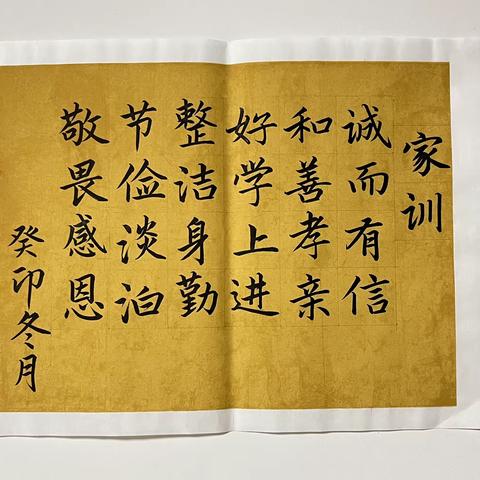 家训
诚而有信
和善孝亲
好学上进
整洁身勤
节俭淡泊
敬畏感恩
癸卯冬月